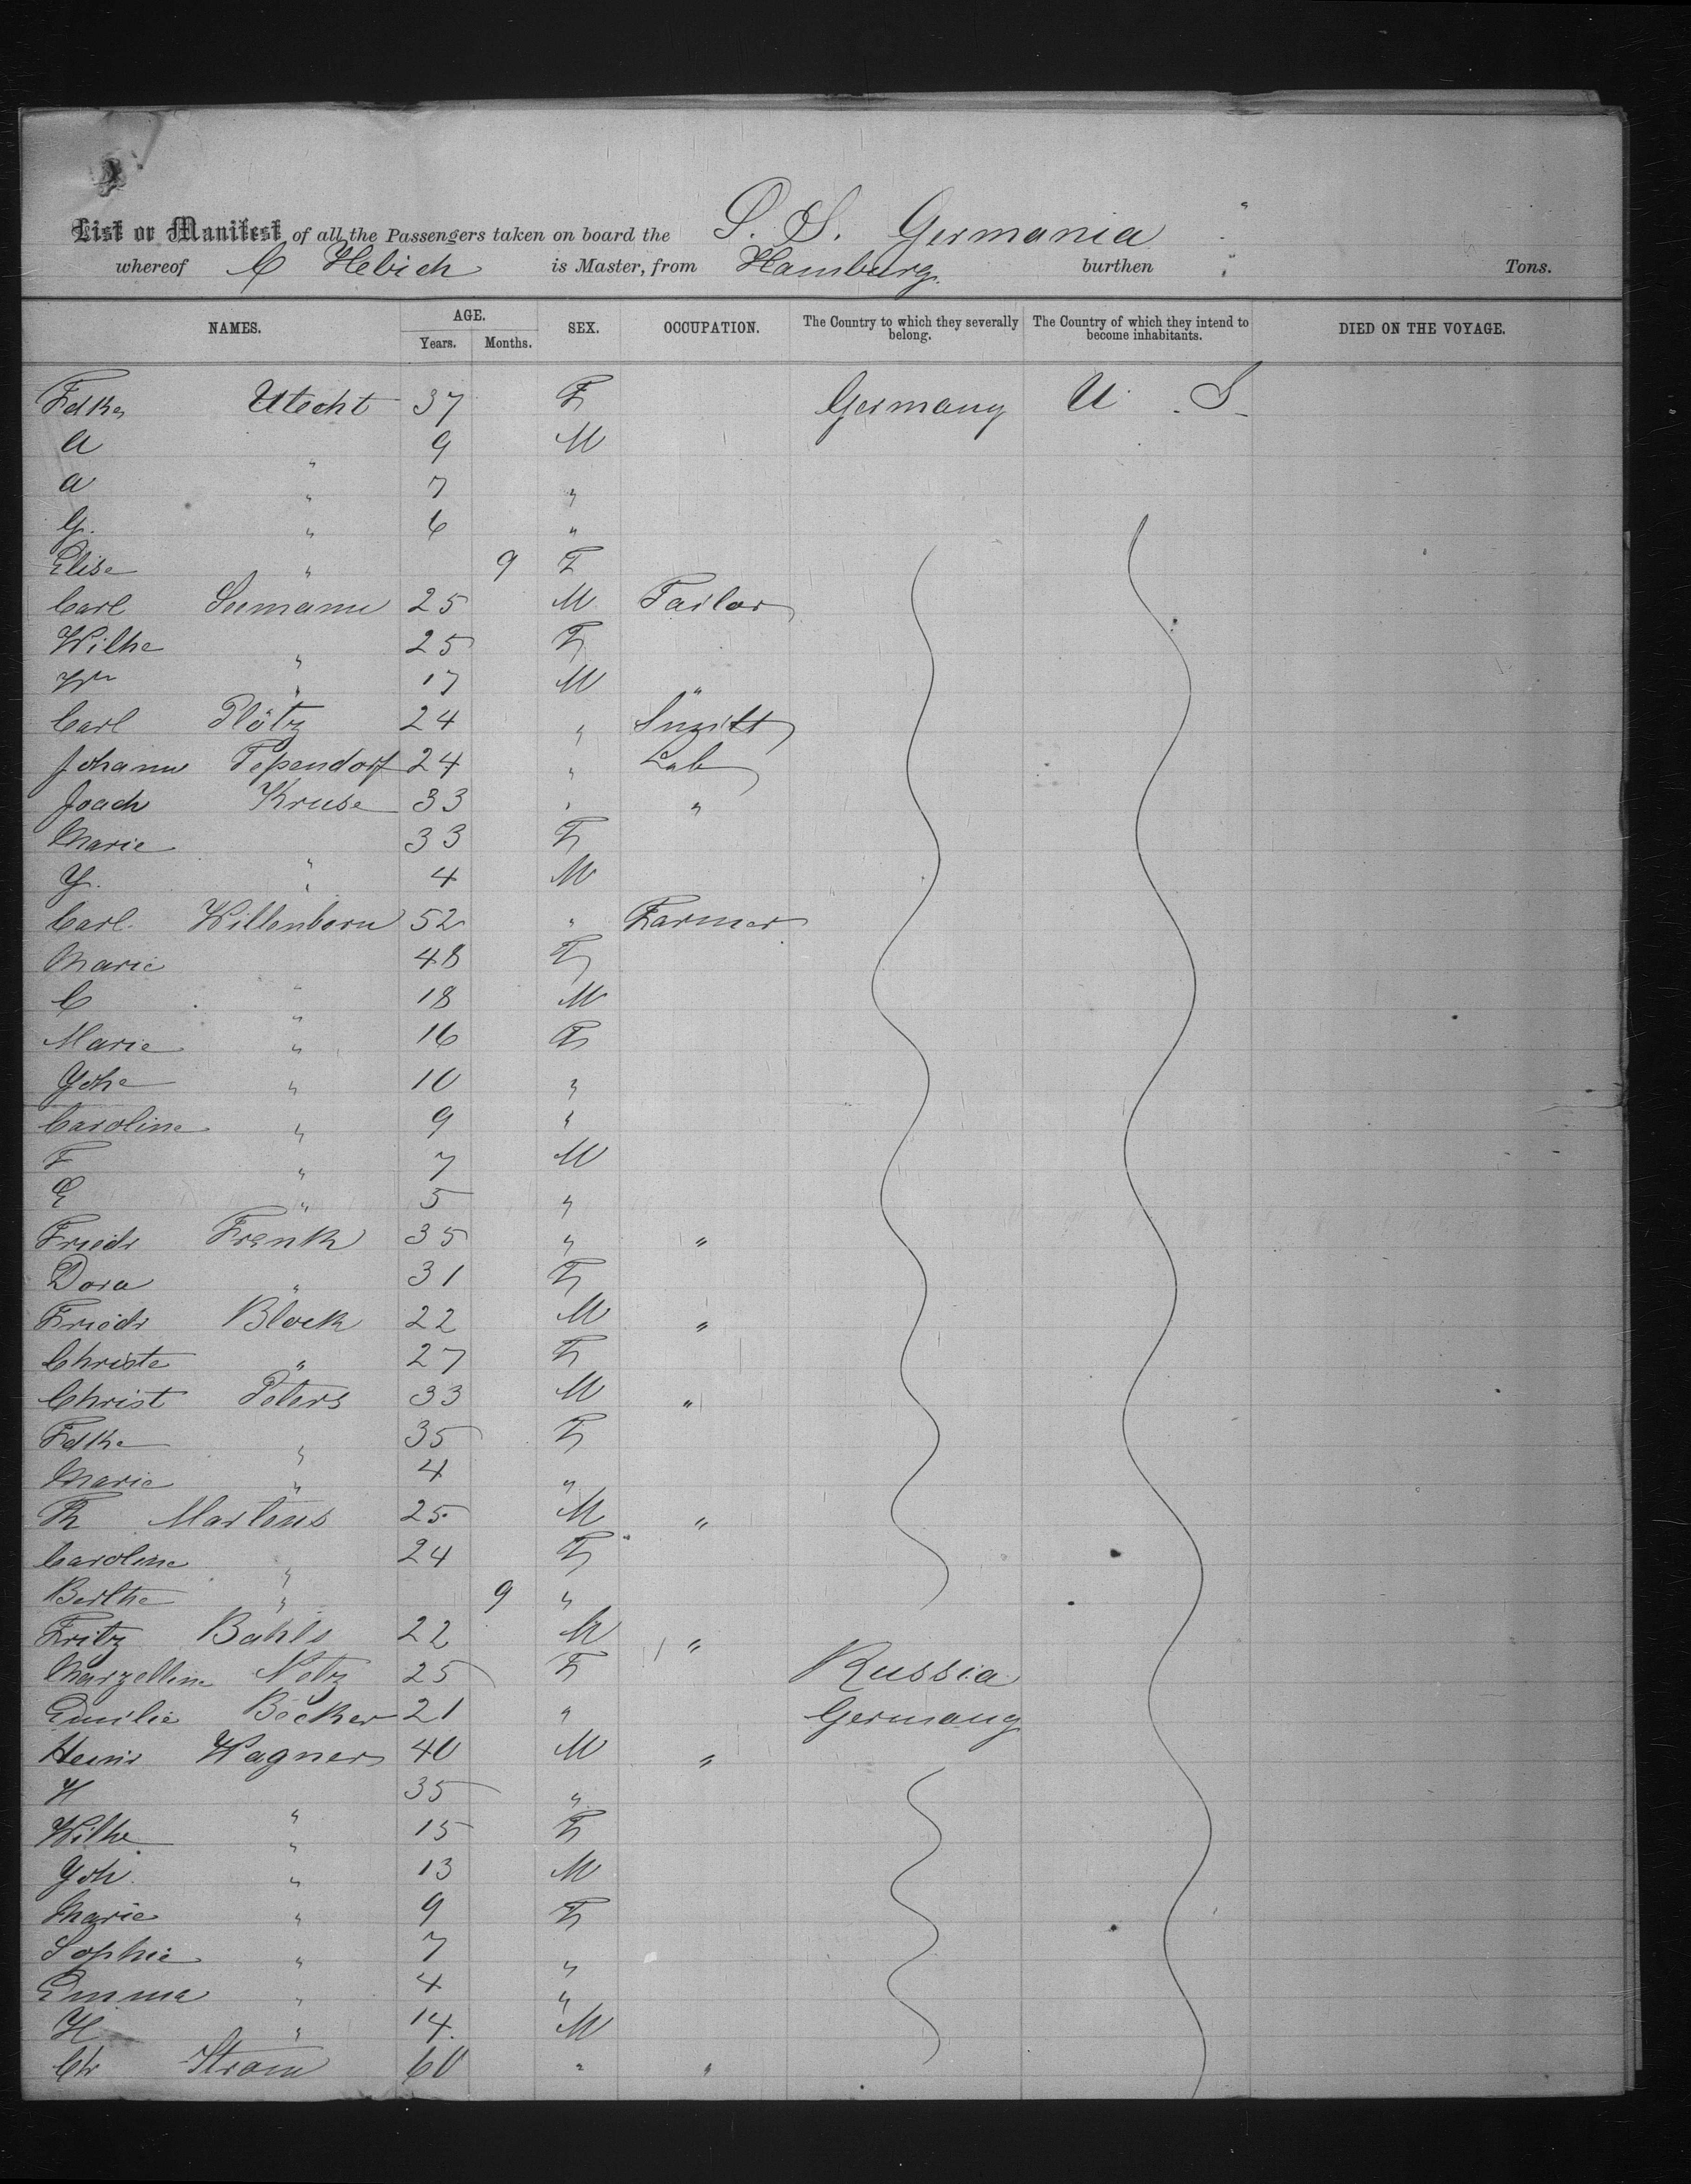 List or Manifest of all the Passengers taken on board the S. S. Germania
whereof C Hebich is Master, from Hamburg burthen Tons.
NAMES. AGE. SEX. OCCUPATION. The Country to which they severally belong. The Country of which they intend to become inhabitants. DIED ON THE VOYAGE.
Years. Months.
Fdke Utecht 37 F Germany U. S.
A " 9 M
A " 7 "
G. " 6 "
Elise " 9 F
Carl Seemann 25 M Tailor
Wilhe " 25 F
Wm " 17 M "
Carl Plötz 24 " Smith
Johann Pependorf 24 " Lab
Joach Kruse 33 " "
Marie " 33 F
J. " 4 M
Carl Willenborn 52 " Farmer
Marie " 48 F
C " 18 M
Marie " 16 F
Johe " 10 "
Caroline " 9 "
F " 7 M
E " 5 "
Friedr Frank 35 " "
Dora " 31 F
Friedr Block 22 M "
Christe " 27 F
Christ Peters 33 M "
Fdke " 35 F
Marie " 4 "
Th Martens 25 M "
Caroline " 24 F
Berthe " 9 "
Fritz Bahls 22 M "
Marzelline Netz 25 F Russia
Emilie Böcker 21 " Germany
Heinr Wagner 40 M "
H " 35 "
Wilhe " 15 F
Joh. " 13 M
Marie " 9 F
Sophie " 7 "
Emma " 4 "
H " 14. M
Chr Strom 60 " "